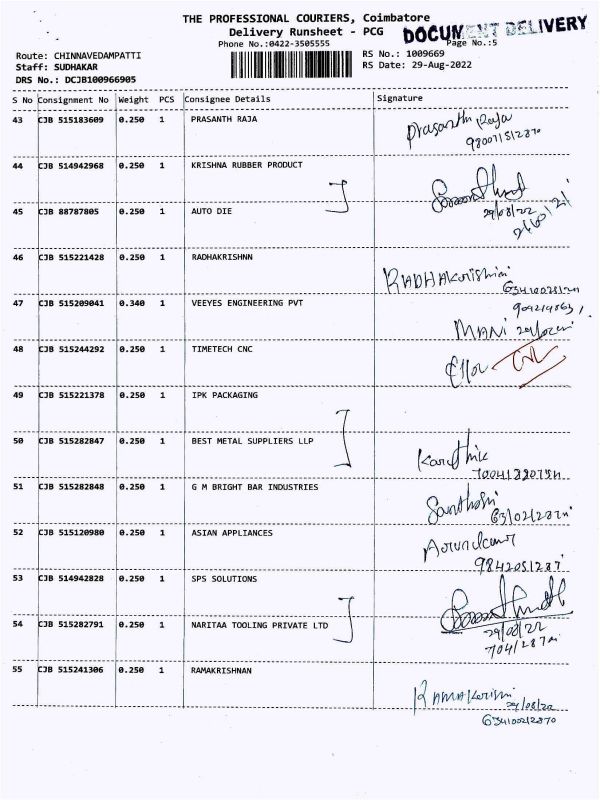 THE PROFESSIONAL COURIERS, Coimbatore
Delivery Runsheet - PCG
DOCUMENT DELIVERY
Phone No.:0422-3505555
Page No.:5
Route: CHINNAVEDAMPATTI
RS No.: 1009669
Staff: SUDHAKAR
RS Date: 29-Aug-2022
DRS No.: DCJB100966905
S No Consignment No Weight PCS Consignee Details Signature
43 CJB 515183609 0.250 1 PRASANTH RAJA
Prasanth Raja
44 CJB 514942968 0.250 1 KRISHNA RUBBER PRODUCT
29/08/22
45 CJB 88787805 0.250 1 AUTO DIE
46 CJB 515221428 0.250 1 RADHAKRISHNN
47 CJB 515209041 0.340 1 VEEYES ENGINEERING PVT
MANI
48 CJB 515244292 0.250 1 TIMETECH CNC
49 CJB 515221378 0.250 1 IPK PACKAGING
50 CJB 515282847 0.250 1 BEST METAL SUPPLIERS LLP
Karthik
51 CJB 515282848 0.250 1 G M BRIGHT BAR INDUSTRIES
52 CJB 515120980 0.250 1 ASIAN APPLIANCES
53 CJB 514942828 0.250 1 SPS SOLUTIONS
54 CJB 515282791 0.250 1 NARITAA TOOLING PRIVATE LTD
29/08/22
55 CJB 515241306 0.250 1 RAMAKRISHNAN
29/08/22